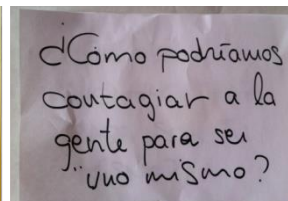 ¿Cómo podríamos
contagiar a la
gente para ser
"uno mismo?